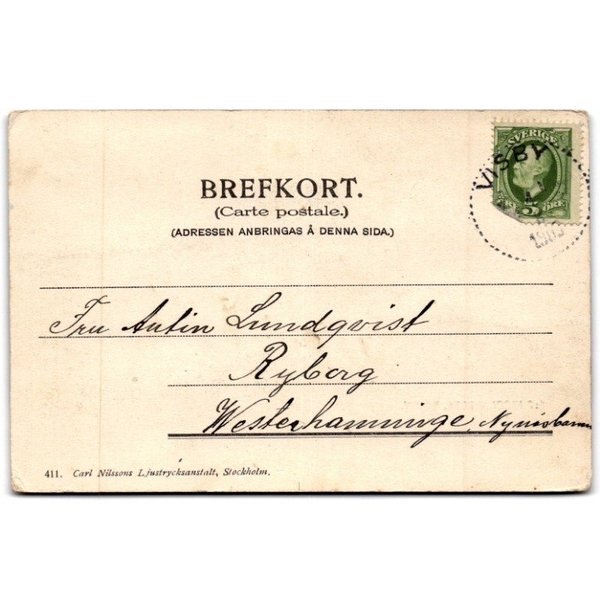 SVERIGE
VISBY
5 ÖRE
BREFKORT.
(Carte postale.)
(ADRESSEN ANBRINGAS Å DENNA SIDA.)
Fru Lundqvist
Ryborg
Westerhamninge
411. Carl Nilssons Ljustrycksanstalt, Stockholm.